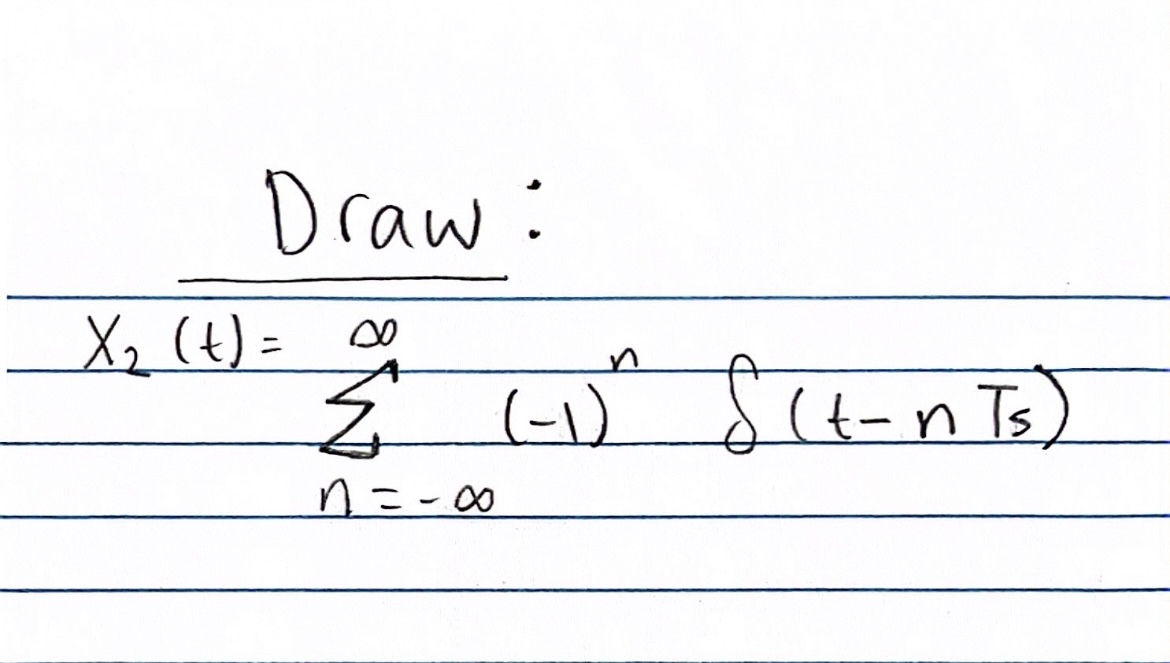 Draw:
X₂ (t) = ∞
Σ (-1)ⁿ δ(t-nTs)
n=-∞